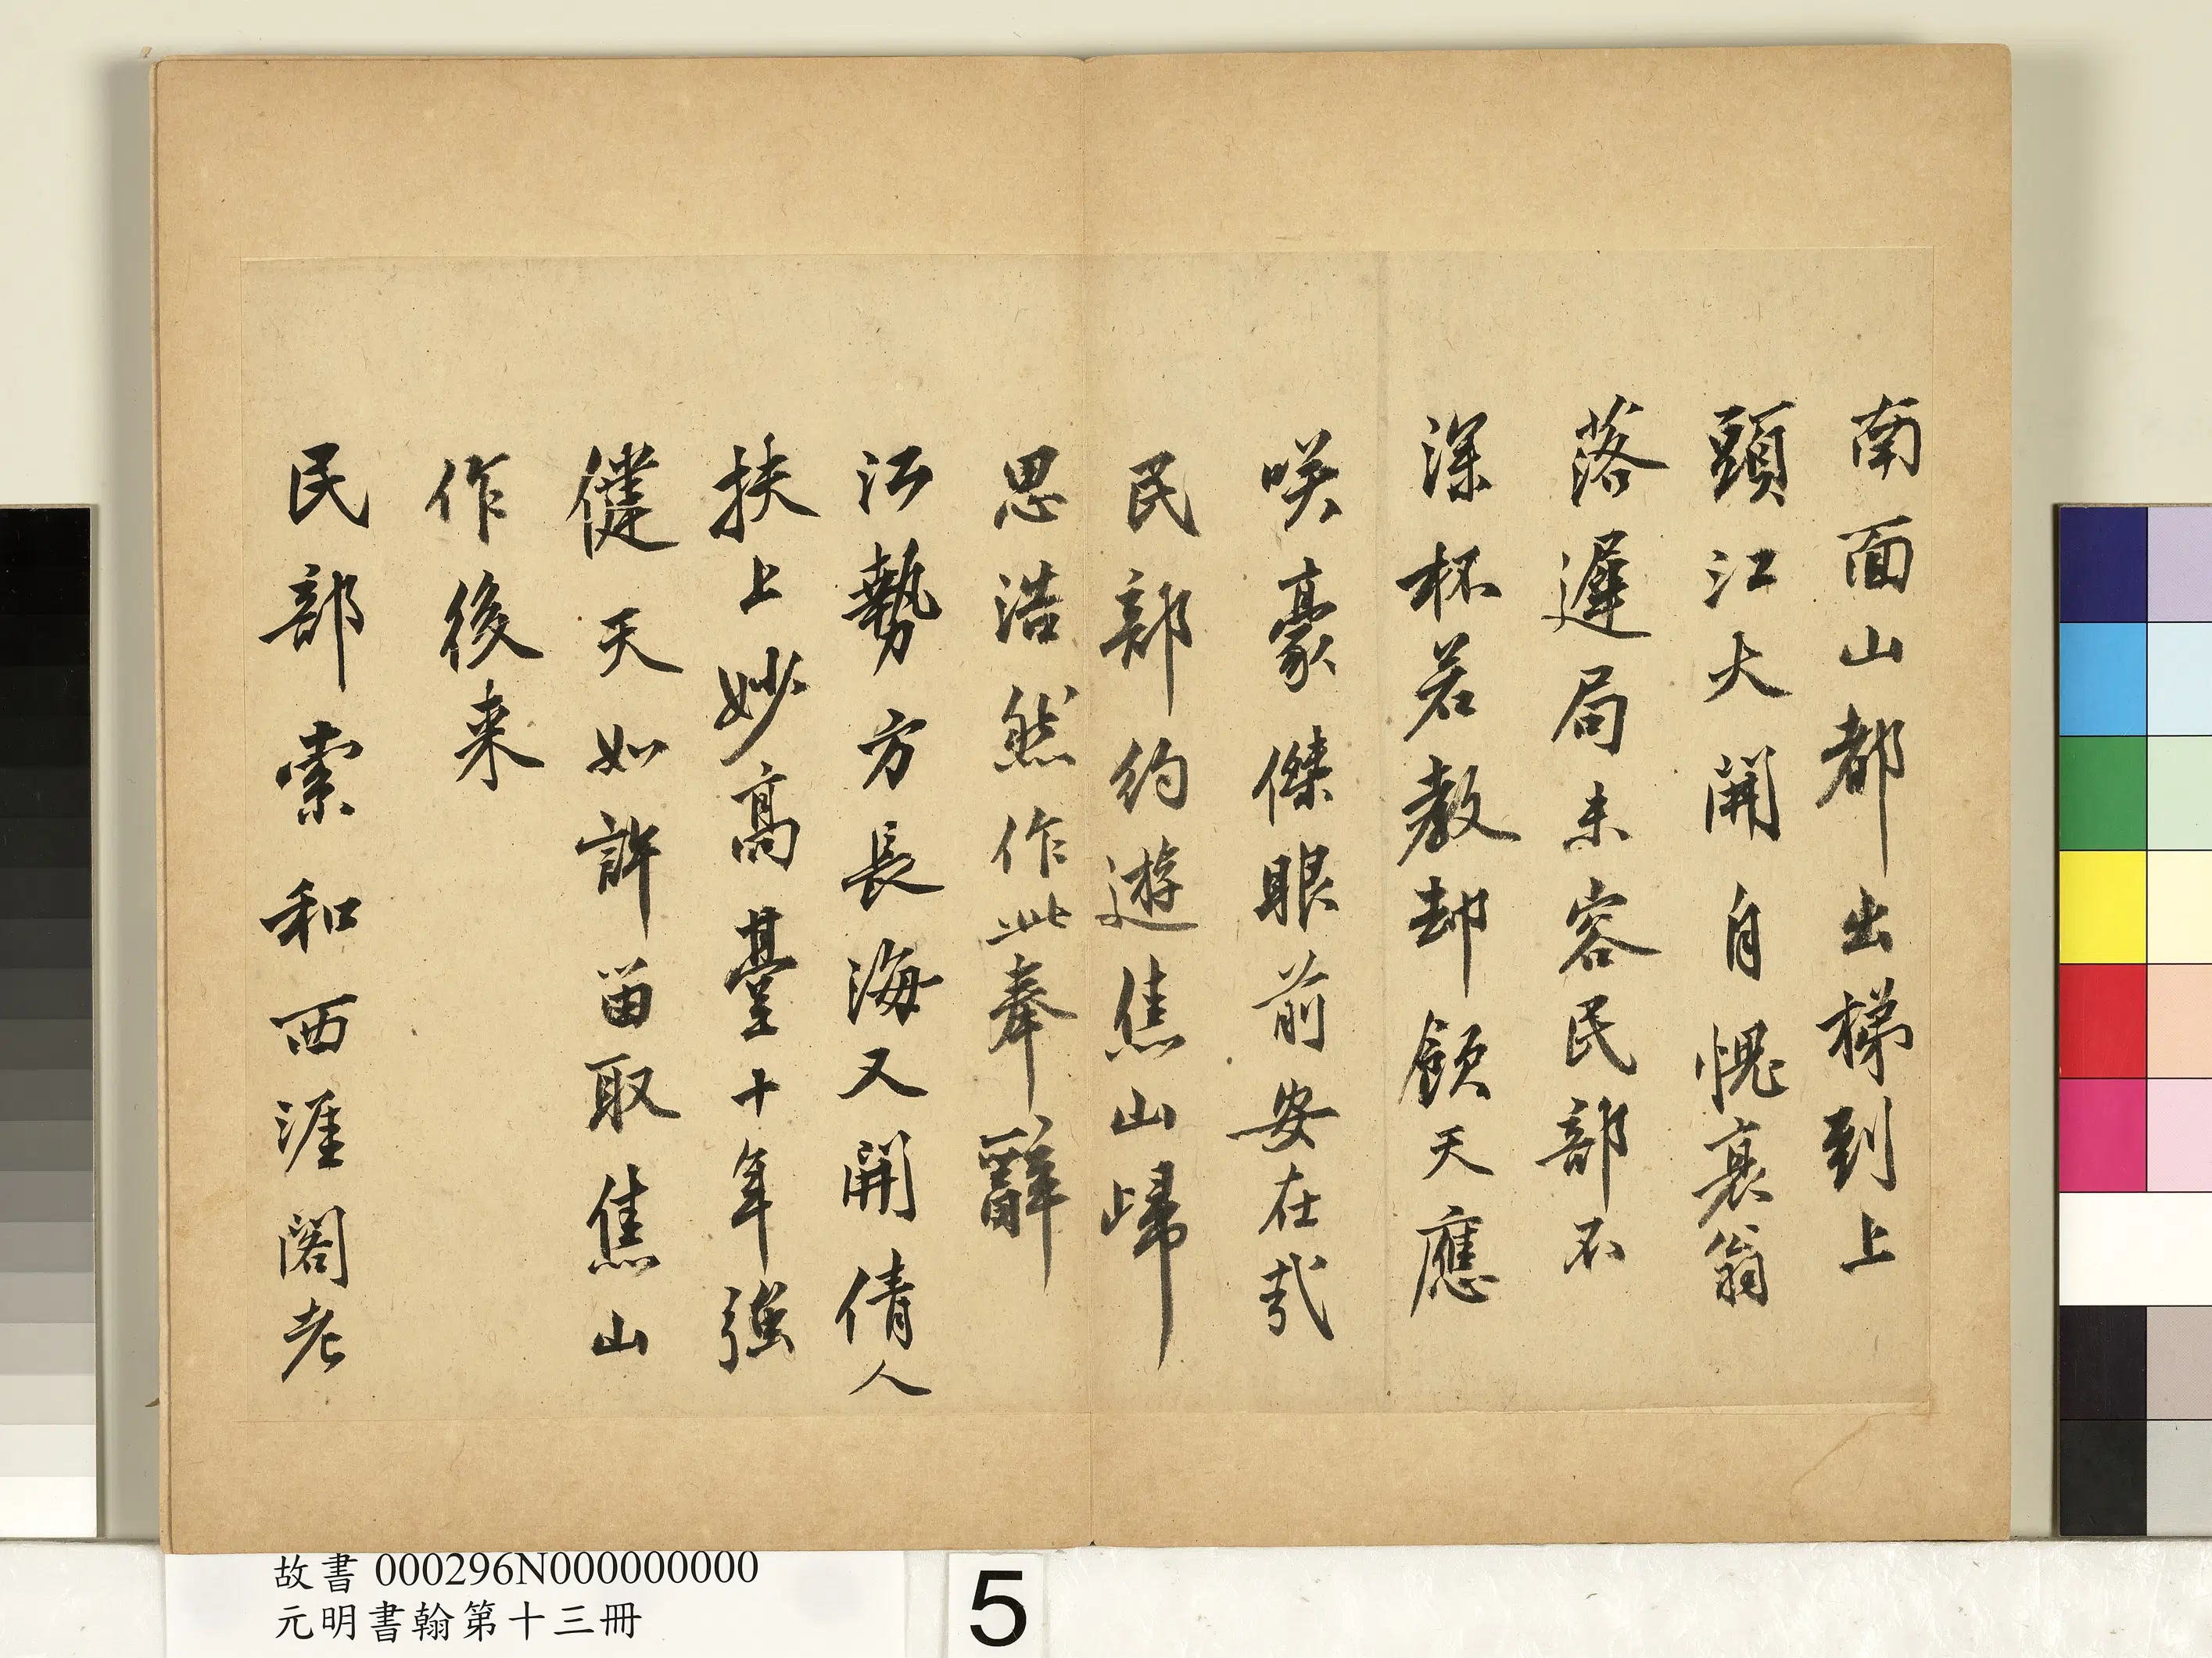 南面山都出梯到上
頭江大開自愧衰翁
落遲局未容民部不
深杯若教却顧天應
咲豪傑眼前安在㢤
民部約遊焦山歸
思浩然作此奉辭
江勢方長海又開倩人
扶上妙高臺十年強
健天如許留取焦山
作後来
民部索和西涯閣老
故書 000296N000000000
元明書翰第十三冊
5